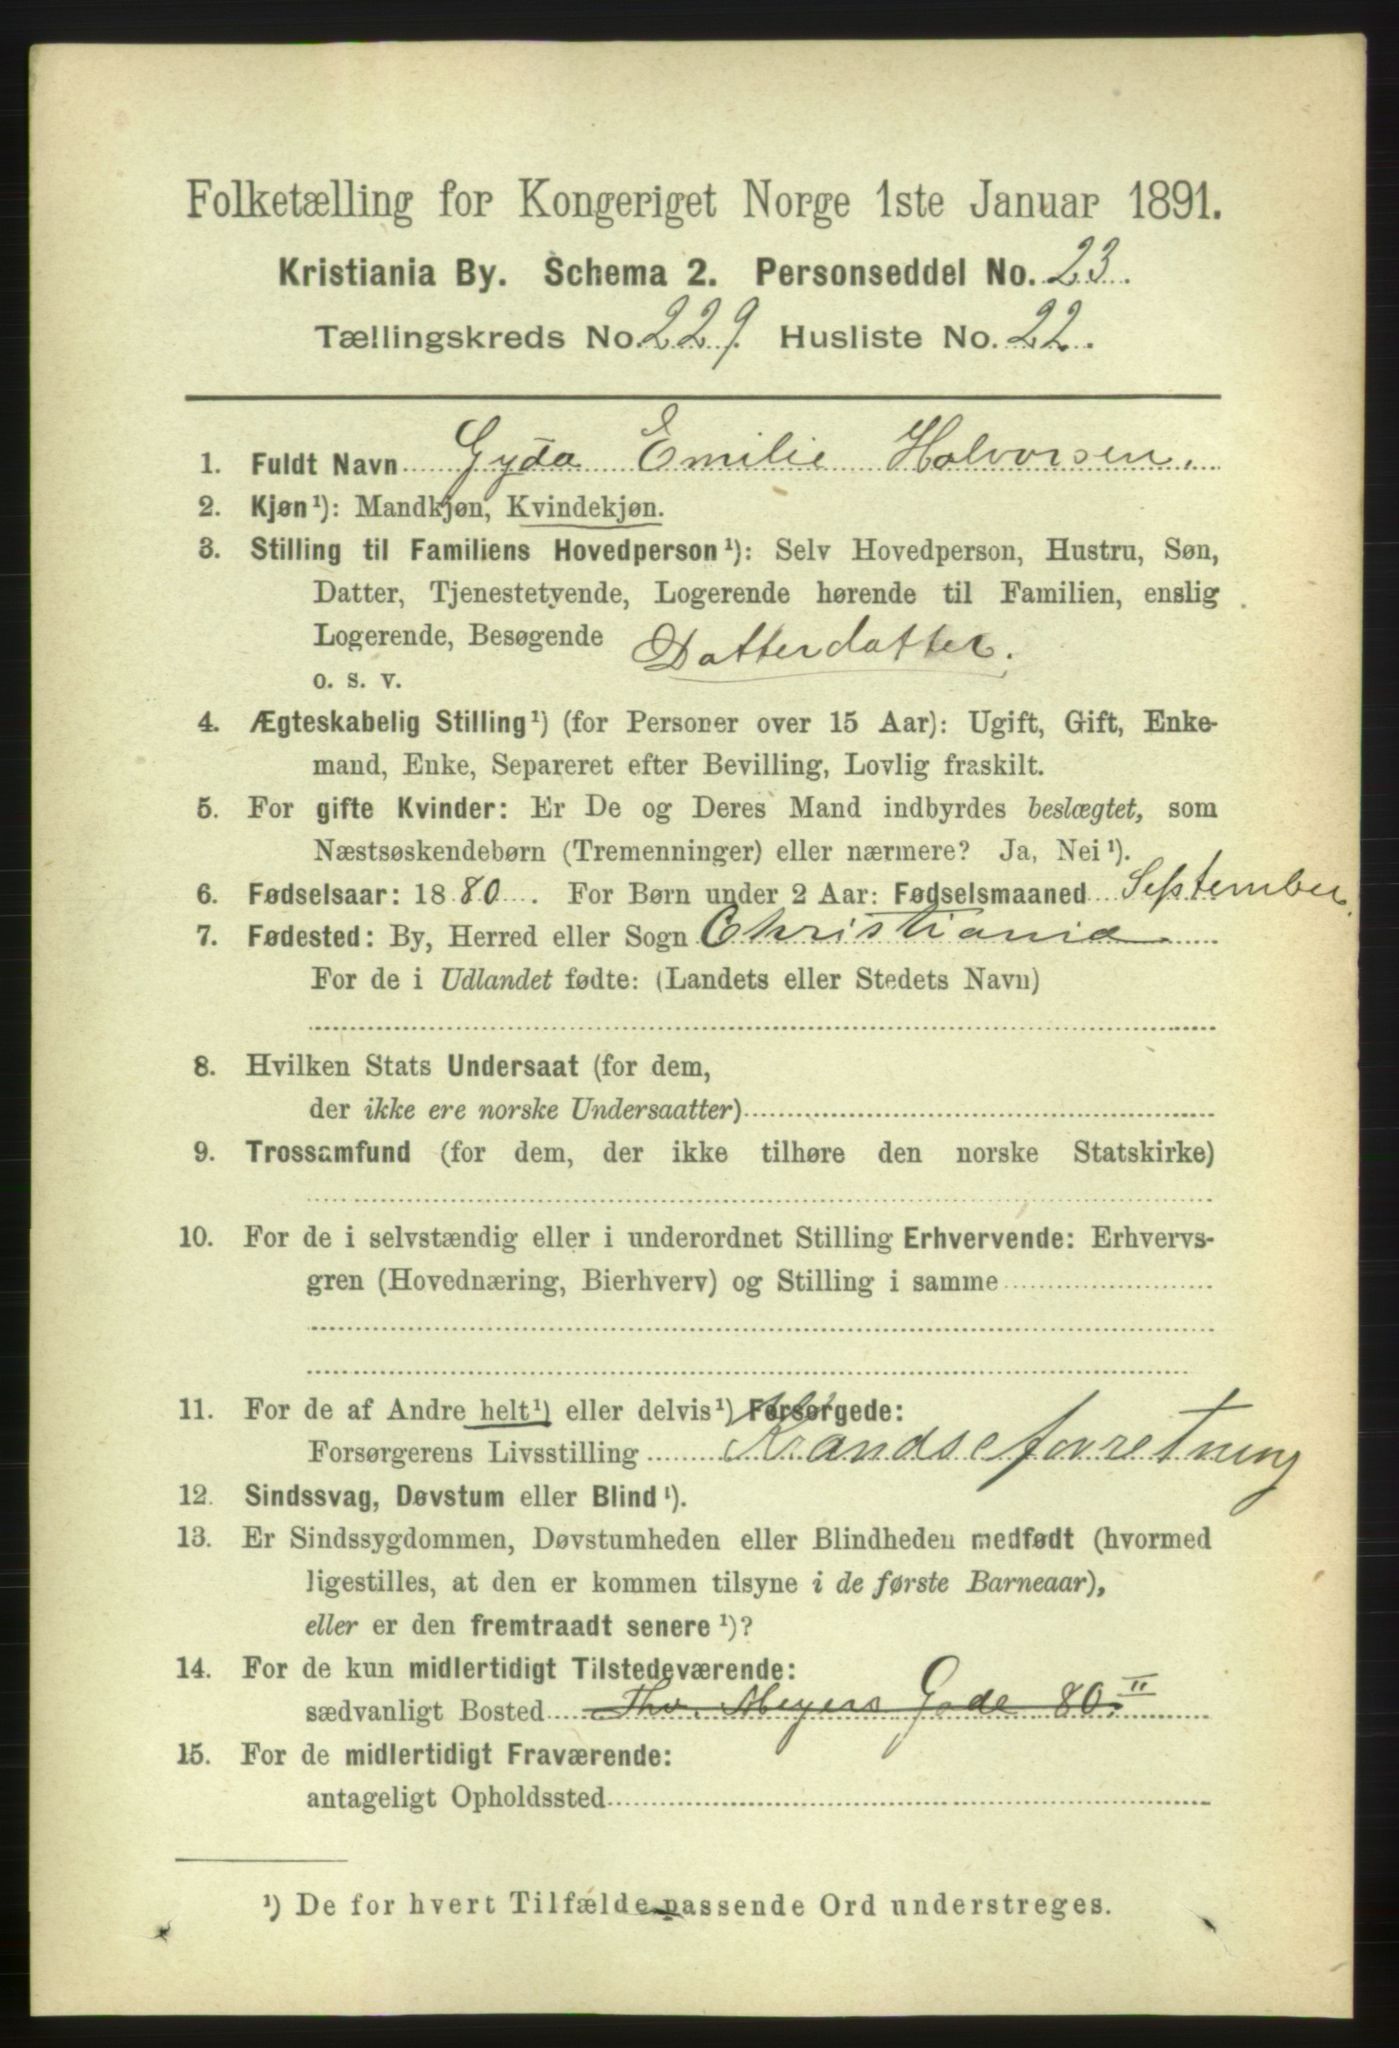 Folketælling for Kongeriget Norge 1ste Januar 1891.
Kristiania By. Schema 2. Personseddel No. 23.
Tællingskreds No. 229. Husliste No. 22.
1. Fuldt Navn Gyda Emilie Halvorsen.
2. Kjøn¹): Mandkjøn, Kvindekjøn.
3. Stilling til Familiens Hovedperson¹): Selv Hovedperson, Hustru, Søn,
Datter, Tjenestetyende, Logerende hørende til Familien, enslig
Logerende, Besøgende Datterdatter.
o. s. v.
4. Ægteskabelig Stilling¹) (for Personer over 15 Aar): Ugift, Gift, Enke-
mand, Enke, Separeret efter Bevilling, Lovlig fraskilt.
5. For gifte Kvinder: Er De og Deres Mand indbyrdes beslægtet, som
Næstsøskendebørn (Tremenninger) eller nærmere? Ja, Nei¹).
6. Fødselsaar: 1880. For Børn under 2 Aar: Fødselsmaaned September.
7. Fødested: By, Herred eller Sogn Christiania
For de i Udlandet fødte: (Landets eller Stedets Navn)
8. Hvilken Stats Undersaat (for dem,
der ikke ere norske Undersaatter)
9. Trossamfund (for dem, der ikke tilhøre den norske Statskirke)
10. For de i selvstændig eller i underordnet Stilling Erhvervende: Erhvervs-
gren (Hovednæring, Bierhverv) og Stilling i samme
11. For de af Andre helt¹) eller delvis¹) Forsørgede:
Forsørgerens Livsstilling Krandseforretning
12. Sindssvag, Døvstum eller Blind¹).
13. Er Sindssygdommen, Døvstumheden eller Blindheden medfødt (hvormed
ligestilles, at den er kommen tilsyne i de første Barneaar),
eller er den fremtraadt senere¹)?
14. For de kun midlertidigt Tilstedeværende:
sædvanligt Bosted Thv. Meyers Gade 80. II
15. For de midlertidigt Fraværende:
antageligt Opholdssted
¹) De for hvert Tilfælde passende Ord understreges.